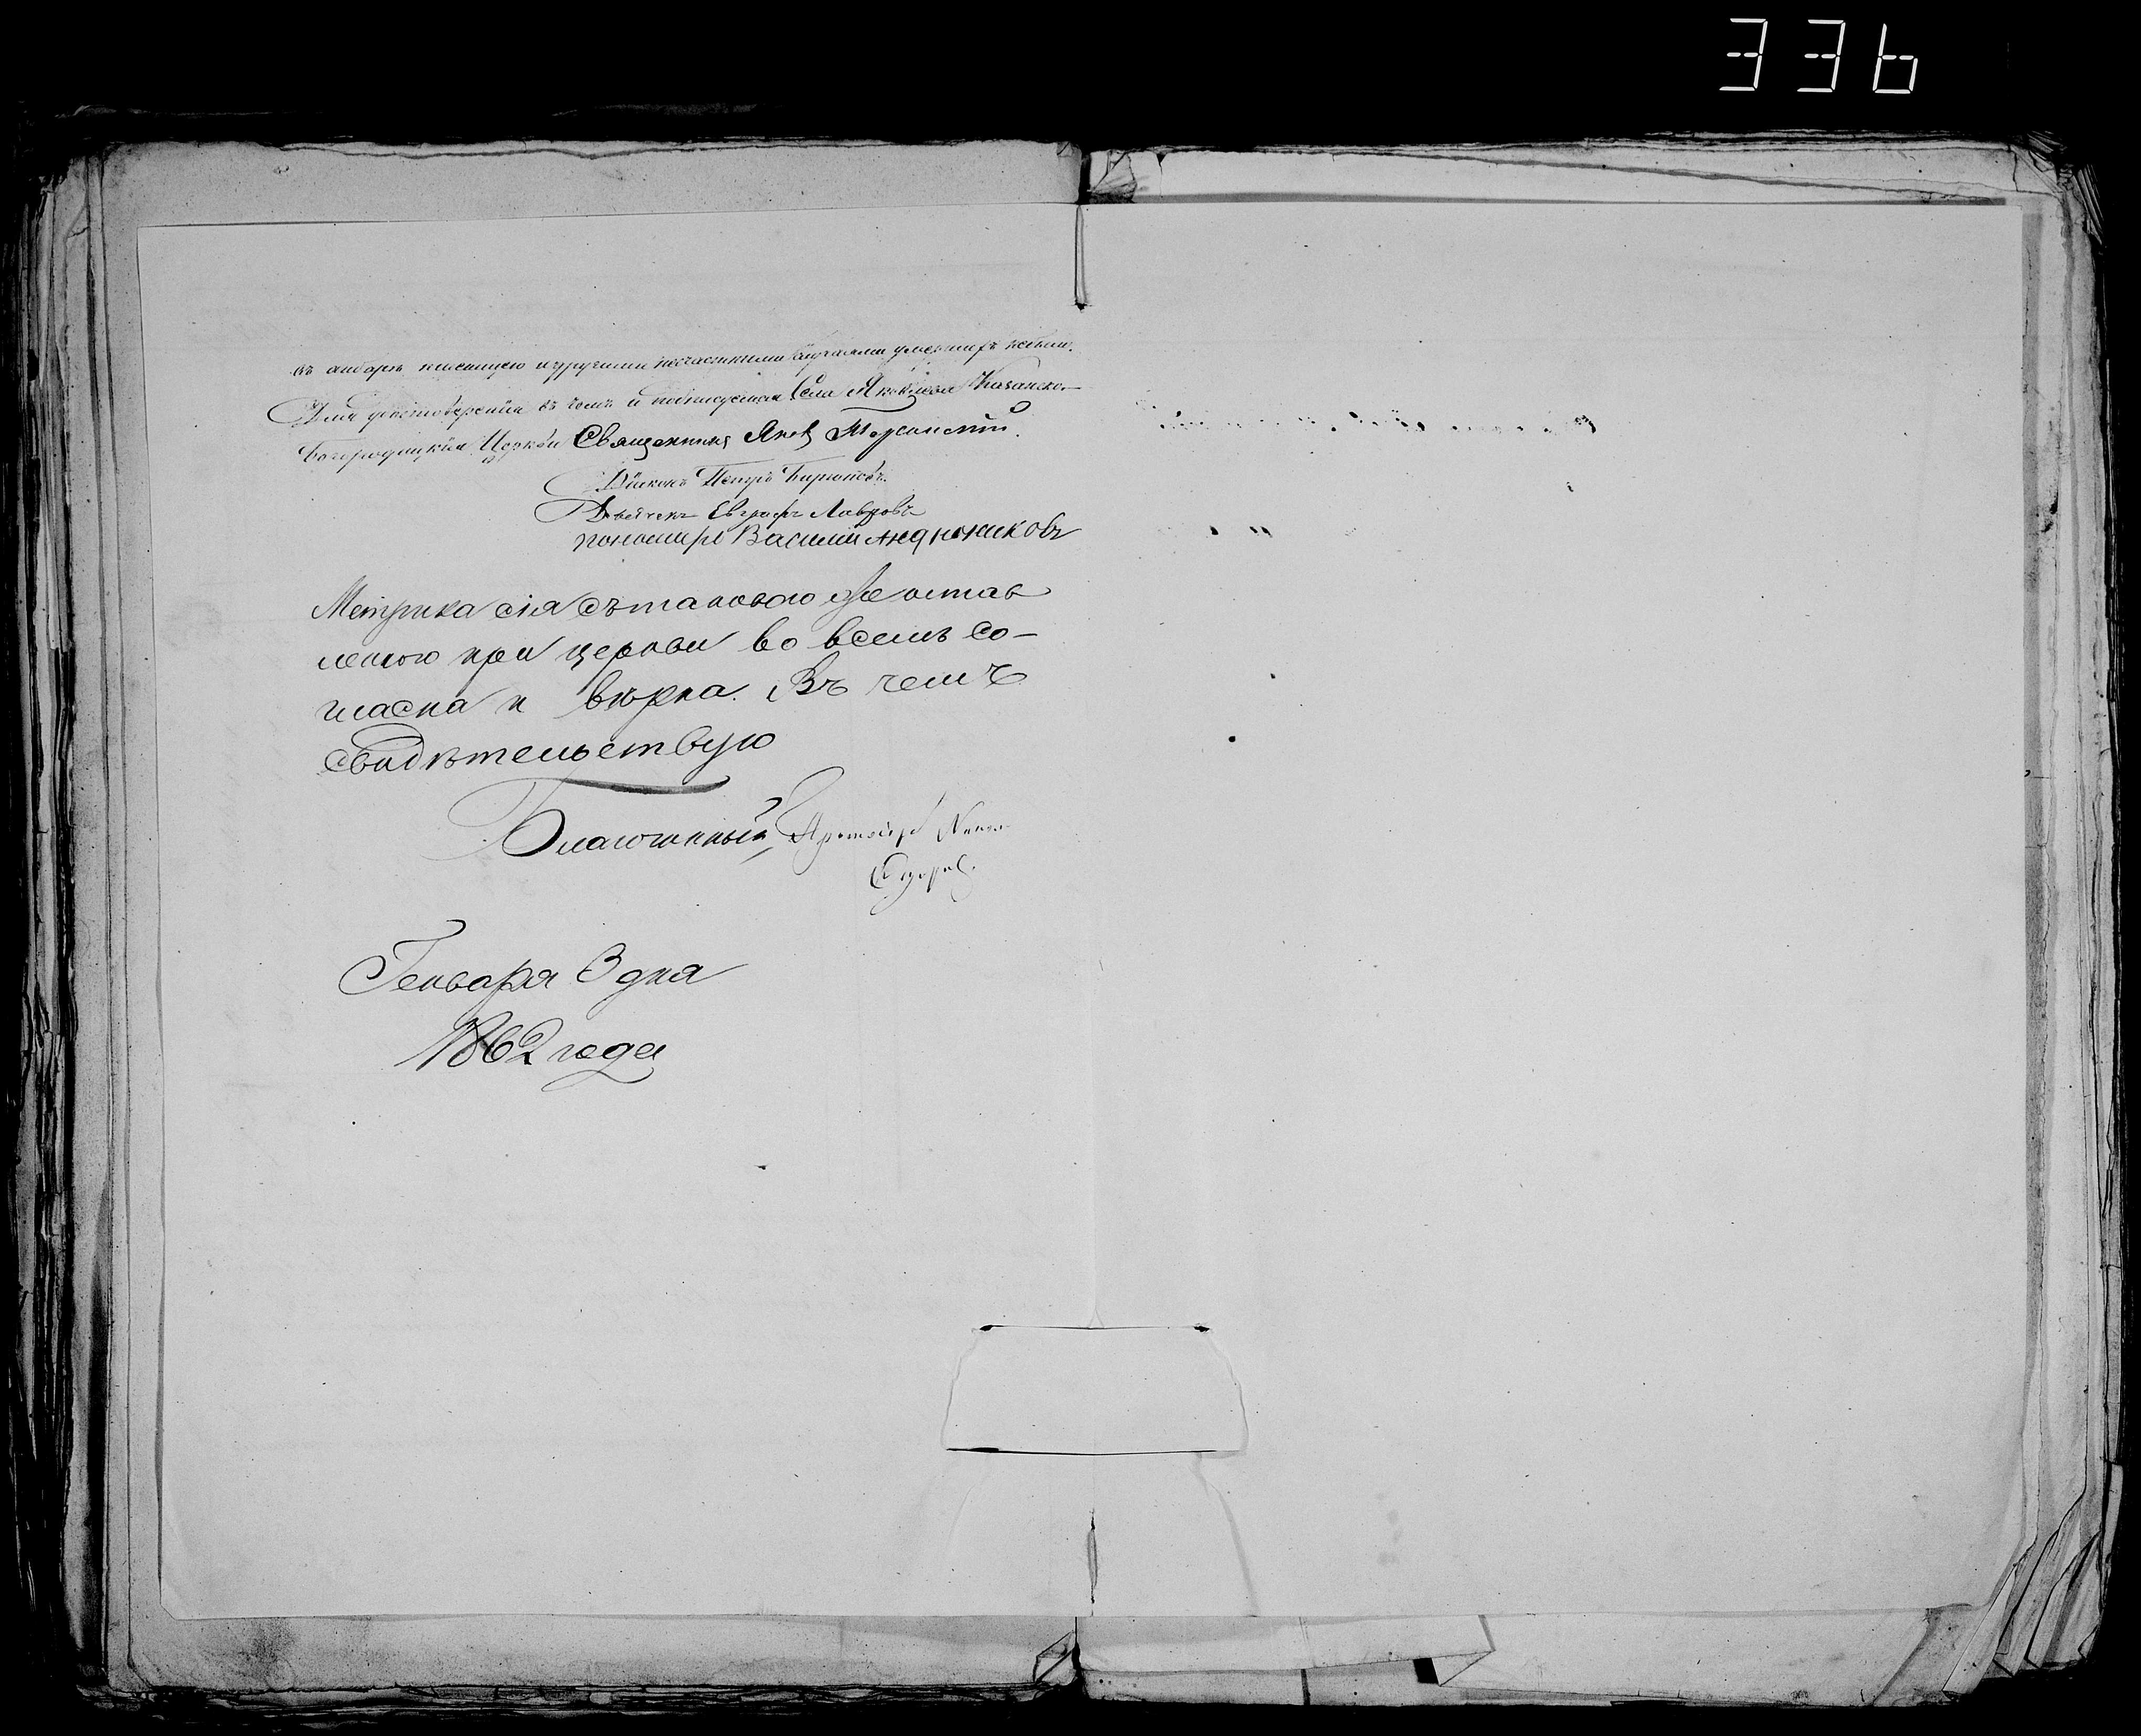 336
въ анбарѣ пшеницею и другими несчастными случаями умершихъ небыли.
Для удостоверенія въ чемъ и подписуемся Села Казанско-
богородицкія Церкви Священникъ
Діаконъ Петръ Бирюковъ.
Дьячекъ Евграфъ Лавровъ
пономарь Василий
Метрика сія сътаковою же остав
леною при церкви во всемъ со-
гласна и вѣрна. Въ чемъ
свидѣтельствую
Благочинный, Протоіерей
Генваря 3 дня
1862 года